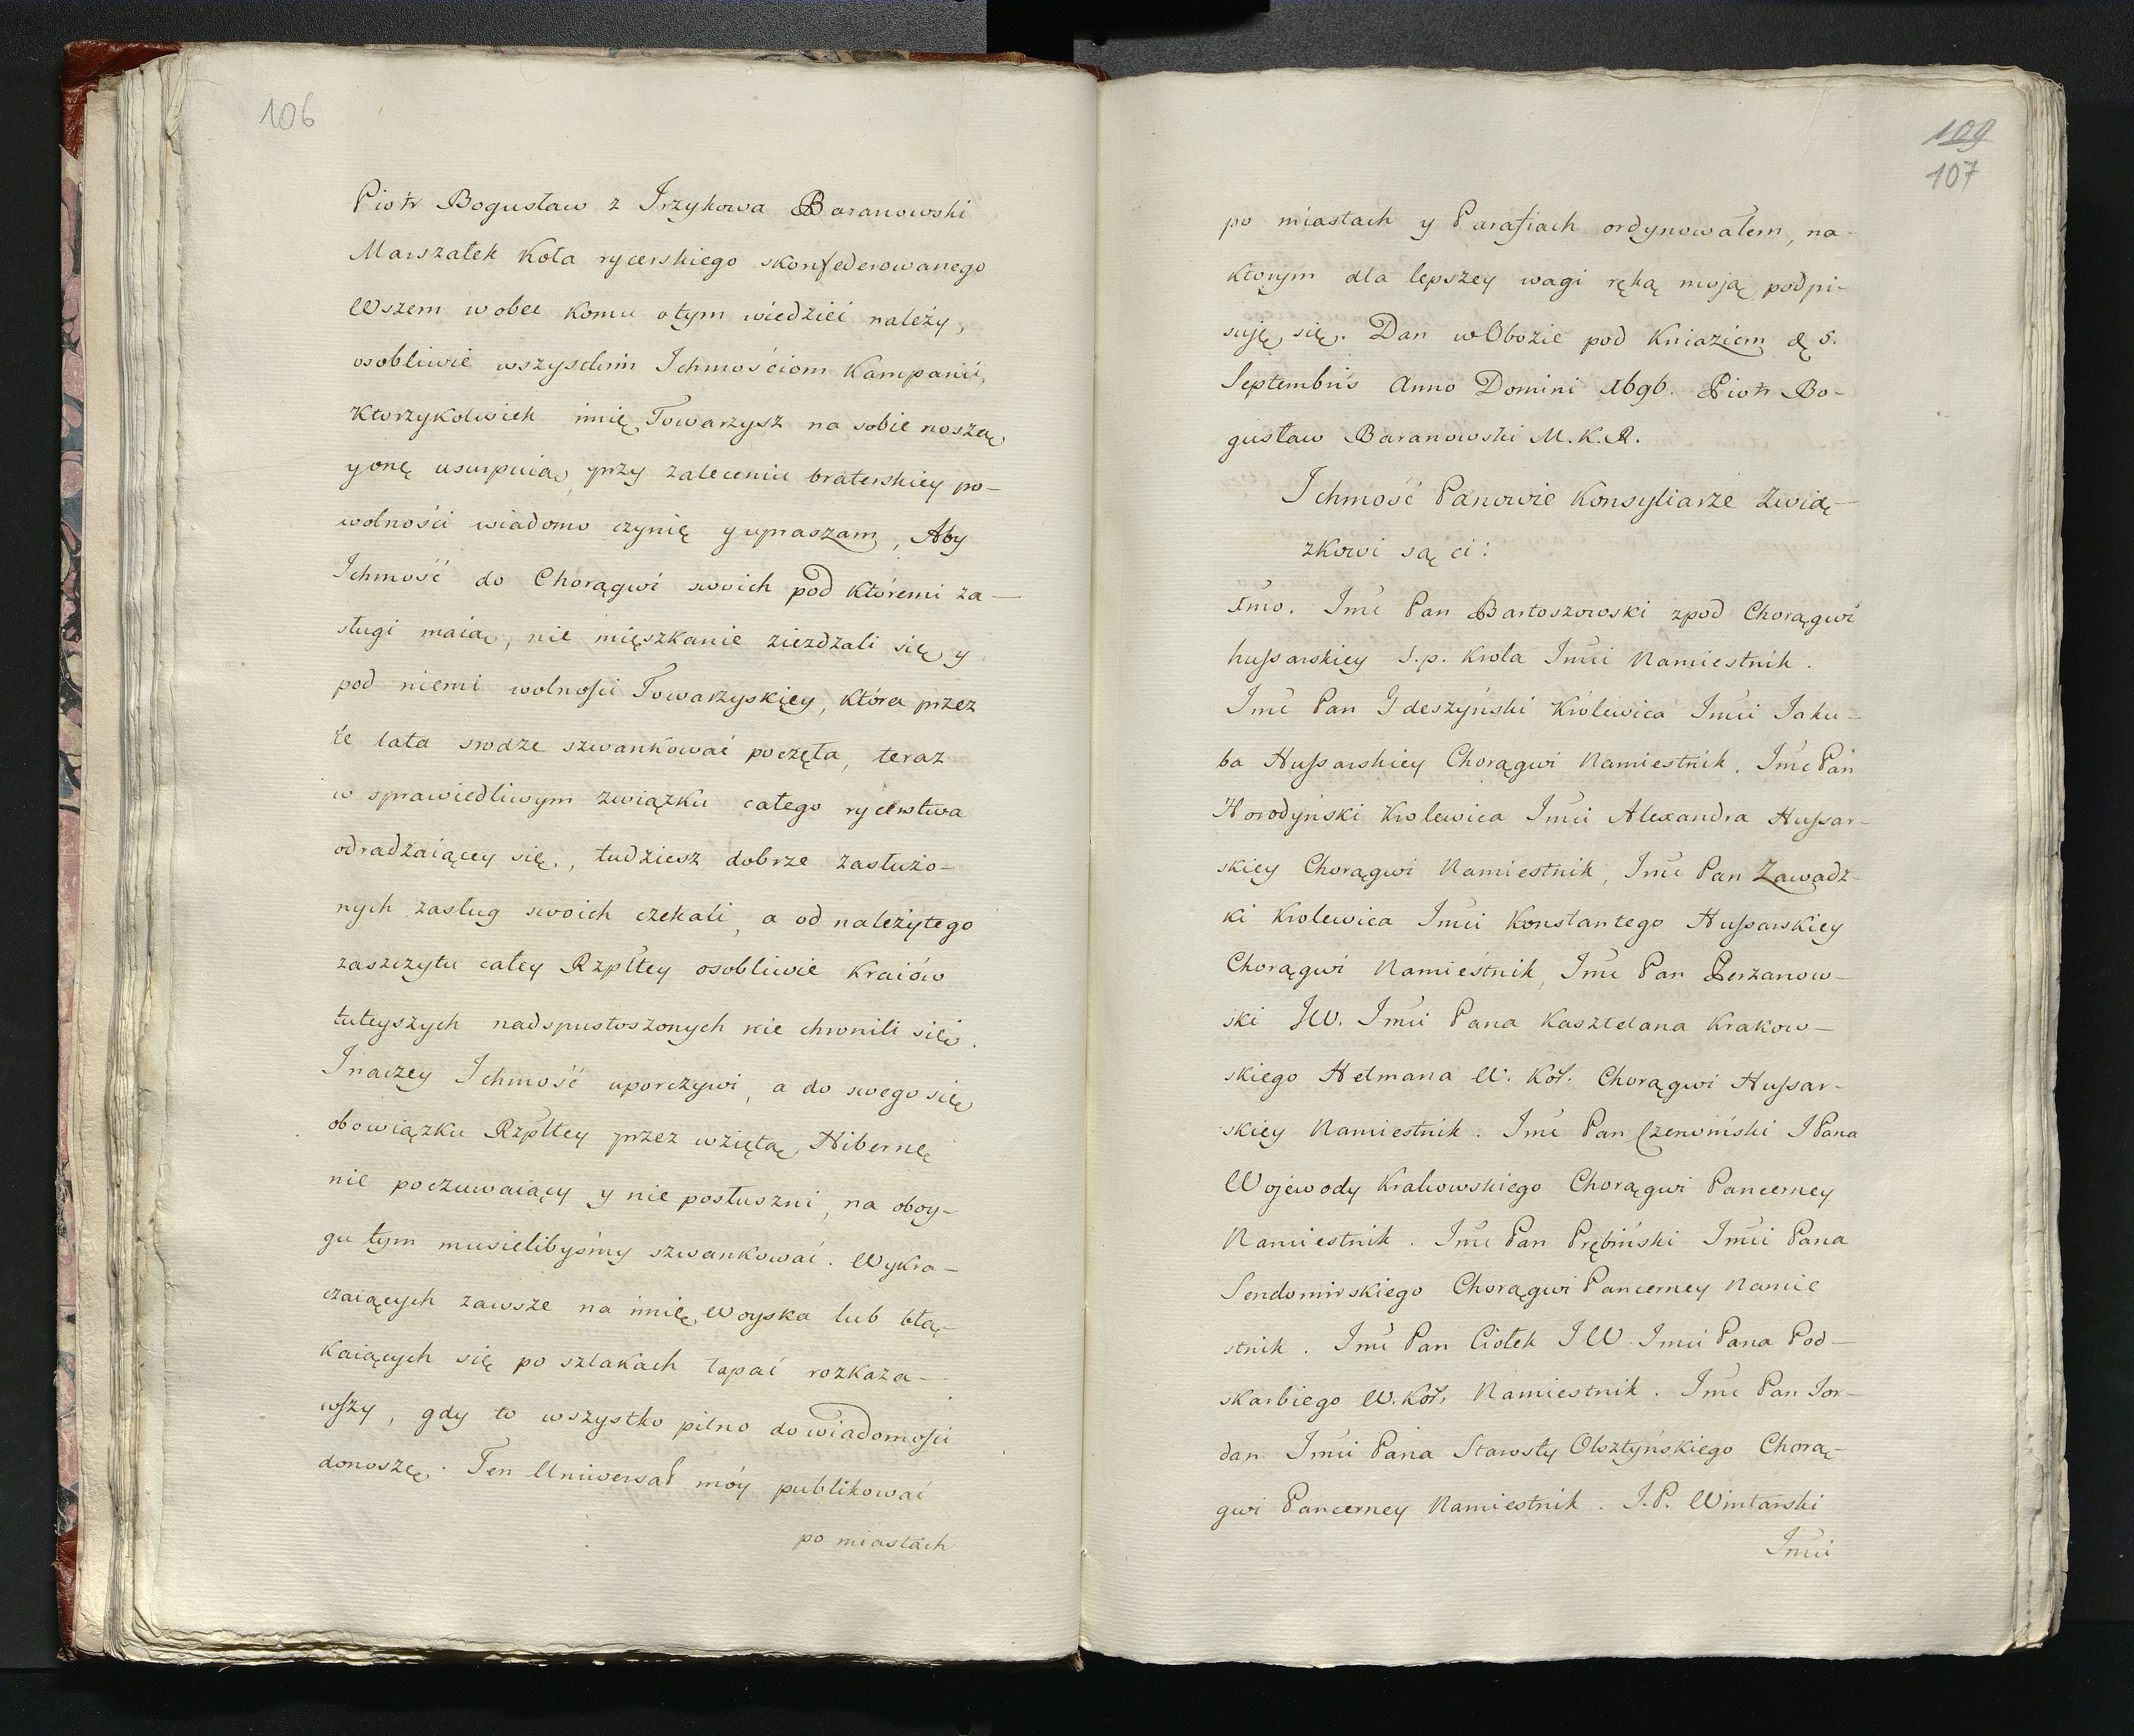 106
Piotr Bogusław z Irzykowa Baranowski
Marszałek Koła rycerskiego skonfederowanego
Wszem wobec komu o tym wiedzieć należy,
osobliwie wszystkim Ichmościom Kampanii,
Ktorzykolwiek imię Towarzysz na sobie noszą
y onę usurpuią, przy zaleceniu braterskiey po-
wolności wiadomo czynię y upraszam, Aby
Ichmość do Chorągwi swoich pod któremi za-
sługi maią, nie mięszkanie ziezdzali się y
pod niemi wolności Towarzyskiey, która przez
te lata srodze szwankować poczęła, teraz
w sprawiedliwym związku całego rycerstwa
odradzaiącey się, tudziesz dobrze zasłużo-
nych zasług swoich czekali, a od należytego
zaszczytu całey Rzpltey osobliwie Kraiów
tuteyszych nadspustoszonych nie chronili się.
Inaczey Ichmość uporczywi, a do swego się
obowiązku Rzpltey przez wziętą Hibernę
nie poczuwaiący y nie posłuszni, na oboy-
gu tym musielibyśmy szwankować. Wykra-
czaiących zawsze na imię Woyska lub błą-
Kaiących się po szlakach łapać rozkaza-
wszy, gdy to wszystko pilno do wiadomości
donoszę. Ten Uniwersał móy publikować
po miastach
109
107
po miastach y Parafiach ordynowałem, na
ktorym dla lepszey wagi ręką moją podpi-
suję się. Dan w Obozie pod Kniaziem d. 5.
Septembris Anno Domini 1696. Piotr Bo-
gusław Baranowski M. K. R.
Ichmość Panowie Konsyliarze Zwią-
zkowi są ci:
1mo. Imć Pan Bartoszowski zpod Chorągwi
hussarskiey S. p. Krola Imci Namiestnik.
Imć Pan Gdeszyński Królewica Imci Jaku-
ba Hussarskiey Chorągwi Namiestnik. Imć Pan
Horodyński Krolewica Imci Alexandra Hussar-
skiey Chorągwi Namiestnik, Imć Pan Zawadz-
ki Krolewica Imci Konstantego Hussarskiey
Chorągwi Namiestnik, Imć Pan Perzanow-
ski JW. Imci Pana Kasztelana Krakow-
skiego Hetmana W. Kor. Chorągwi Hussar-
skiey Namiestnik. Imć Pan Czeromski J Pana
Wojewody Krakowskiego Chorągwi Pancerney
Namiestnik. Imć Pan Prębiński Imci Pana
Sendomirskiego Chorągwi Pancerney Namie
stnik. Imć Pan Ciołek JW. Imci Pana Pod-
skarbiego W. Kor. Namiestnik. Imć Pan Jor-
dan Imci Pana Starosty Olsztyńskiego Chorą-
gwi Pancerney Namiestnik. J. P. Wintarski
Imci